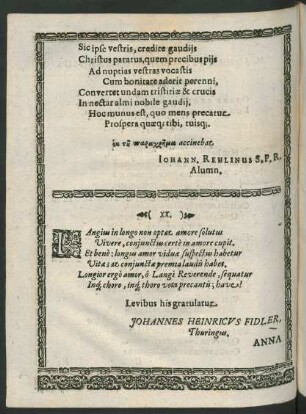 Sic ipse vestris, credite gaudijs
Christus paratus, quem precibus pijs
Ad nuptias vestras vocastis
Cum bonitate aderit perenni,
Convertet undam tristitiæ & crucis
In nectar almi nobile gaudij,
Hoc munus est, quo mens precatur
Prospera quæq; tibi, tuisq;.
ἐκ τῦ παραχρῆμα accinebat.
IOHANN. REHLINUS S. F. R.
Alumn.
XX.
LAngius in longo non optat amore solutus
Vivere, conjunctus certè in amore cupit.
Et benè: longus amor viduæ suspectus habetur
Vitæ: at conjunctæ præmia laudis habet.
Longior ergò amor, ô Langi Reverende, sequatur
Inq; choro, inq; thoro vota precantis; have,s!
Levibus his gratulatur
JOHANNES HEINRICVS FIDLER,
Thuringus.
ANNA